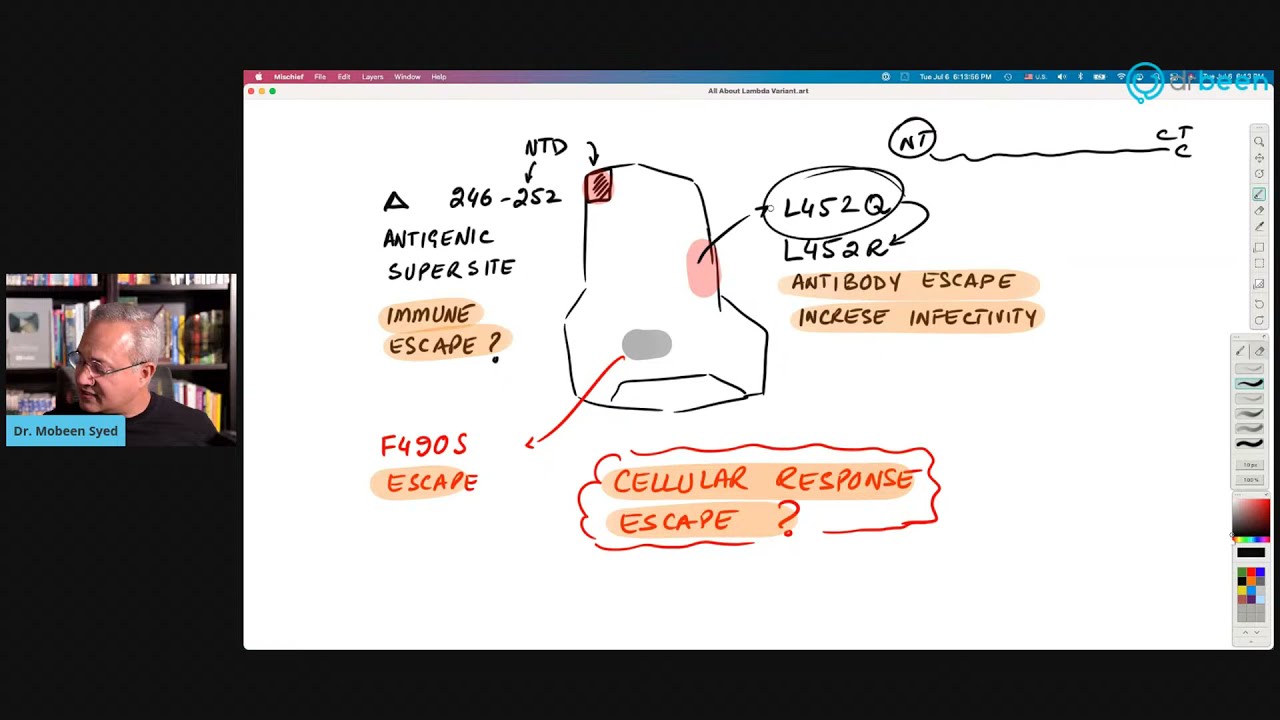 Mischief File Edit Layers Window Help
U.S. Tue Jul 6 6:13:56 PM
drbeen
All About Lambda Variant.art
NTD
NT
CT
C
Δ 246-252
ANTIGENIC
SUPERSITE
IMMUNE
ESCAPE?
L452Q
L452R
ANTIBODY ESCAPE
INCRESE INFECTIVITY
F490S
ESCAPE
CELLULAR RESPONSE
ESCAPE ?
Dr. Mobeen Syed
10 px
100 %